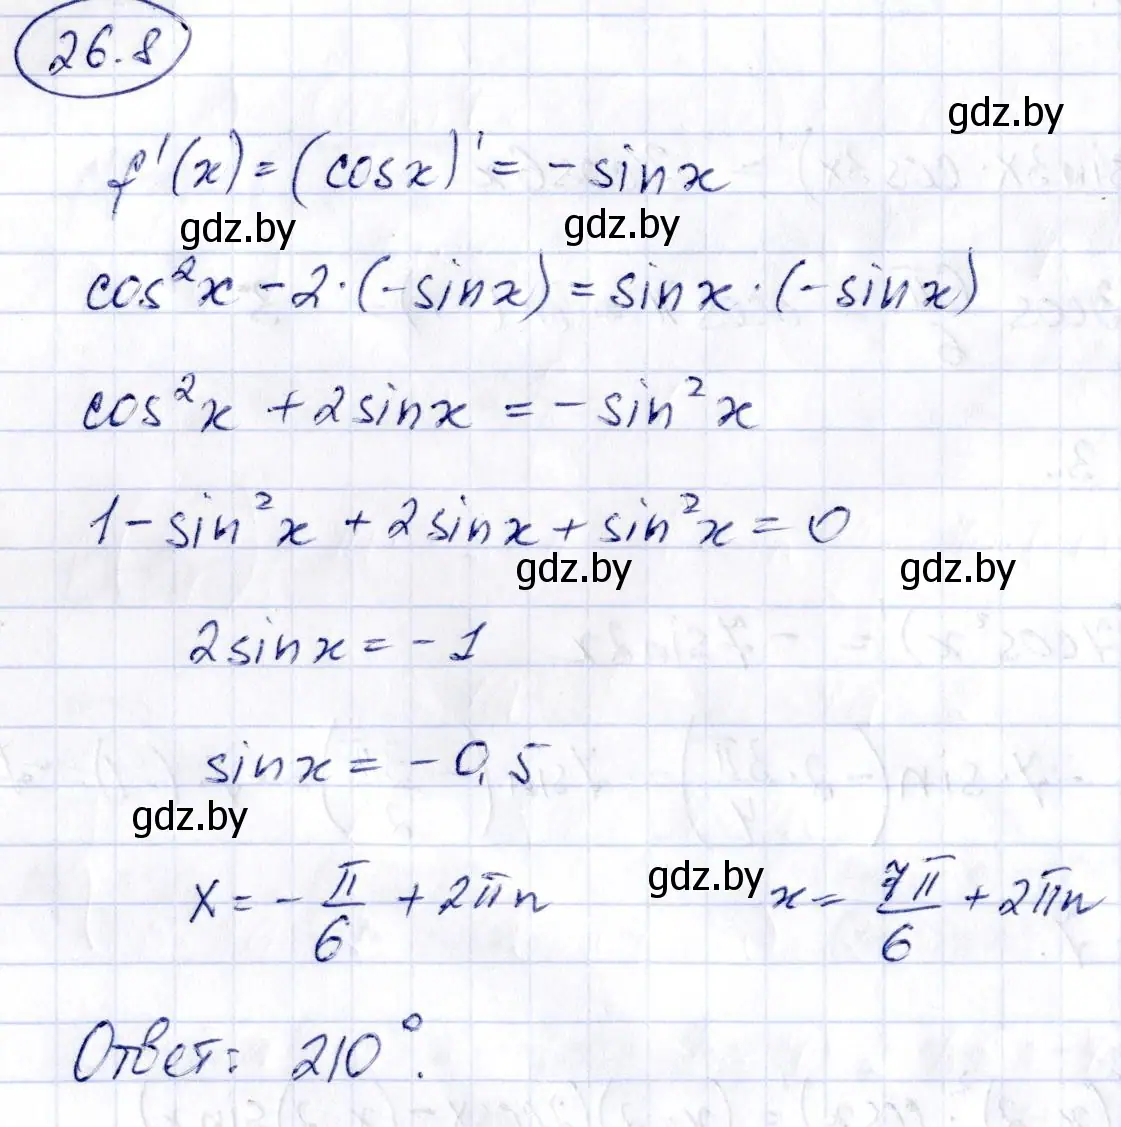 26.8
gdz.by
f'(x) = (cosx)' = - sinx
gdz.by gdz.by
cos²x - 2·(-sinx) = sinx·(-sinx)
cos²x + 2sinx = - sin²x
1 - sin²x + 2sinx + sin²x = 0
gdz.by gdz.by
2sinx = - 1
sinx = - 0,5
gdz.by
x = - π/6 + 2πn gdz.by x = 7π/6 + 2πn
Ответ: 210°.